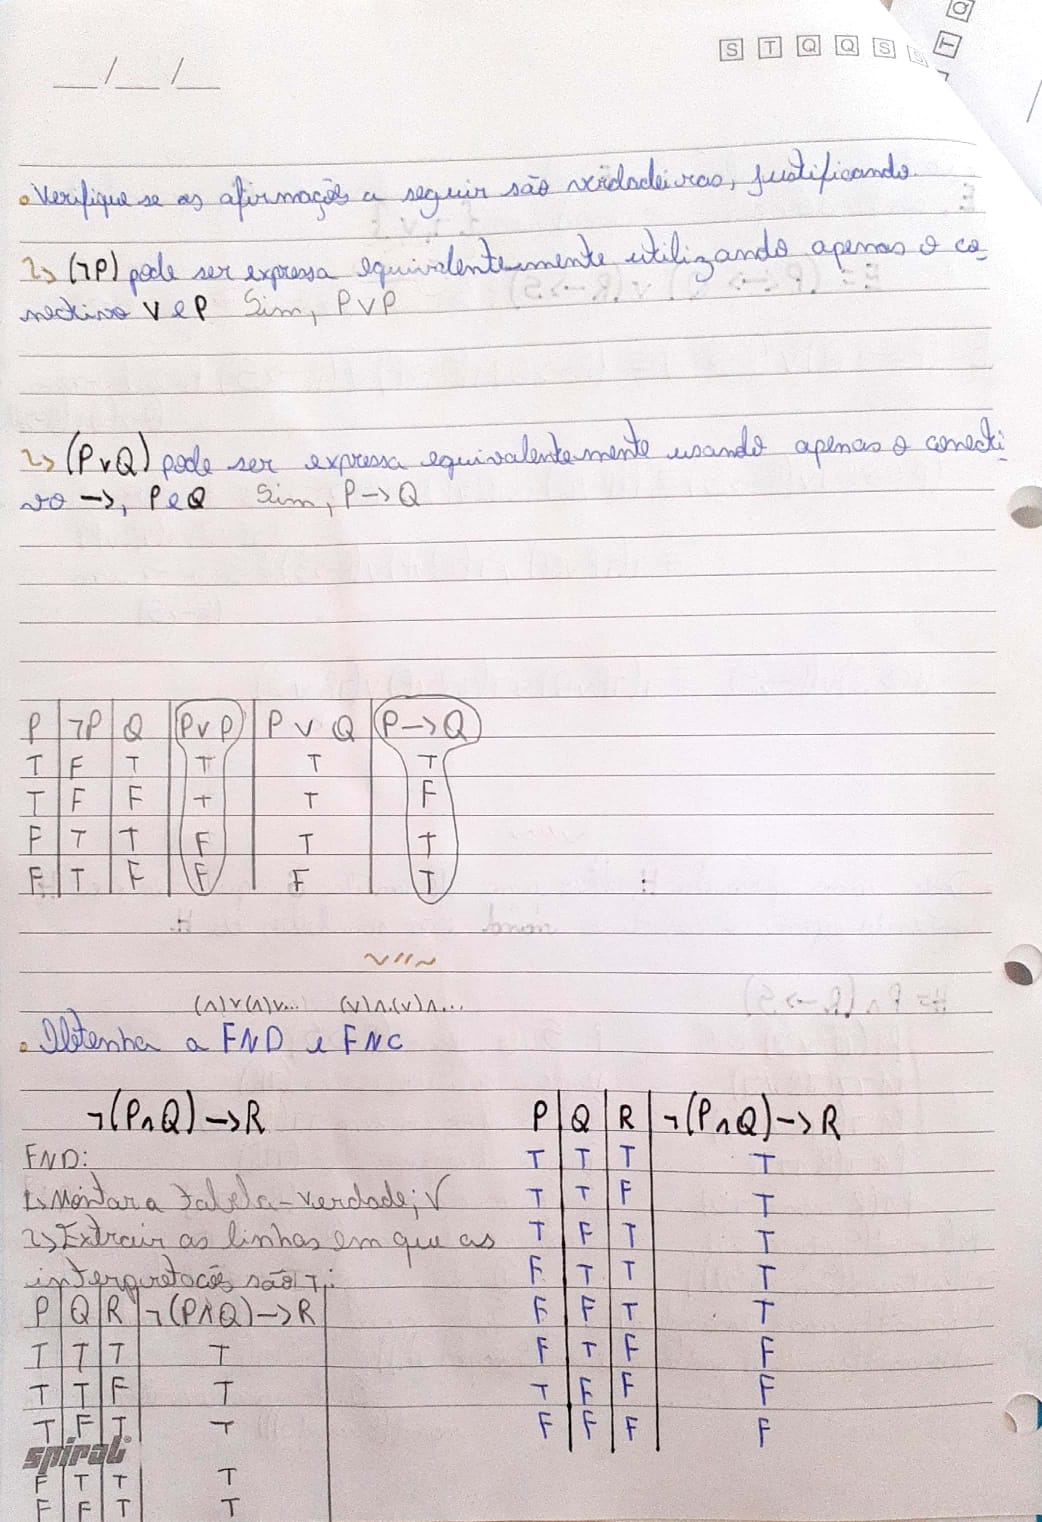 S T Q Q S
__/__/__
• Verifique se as afirmações a seguir são verdadeiras, justificando.
1↳ (¬P) pode ser expressa equivalentemente utilizando apenas o co-
nectivo ∨ e P Sim, P∨P
2↳ (P∨Q) pode ser expressa equivalentemente usando apenas o conecti-
vo →, P e Q Sim, P→Q
P ¬P Q P∨P P ∨ Q P→Q
T F T T T T
T F F T T F
F T T F T T
F T F F F T
(∧)∨(∧)∨... (∨)∧(∨)∧...
• Obtenha a FND e FNC
¬(P∧Q)→R
FND:
1↳ Montar a tabela-verdade; √
2↳ Extrair as linhas em que as
interpretações são T;
P Q R ¬(P∧Q)→R
T T T T
T T F T
T F T T
spiral
F T T T
F F T T
P Q R ¬(P∧Q)→R
T T T T
T T F T
T F T T
F T T T
F F T T
F T F F
T F F F
F F F F